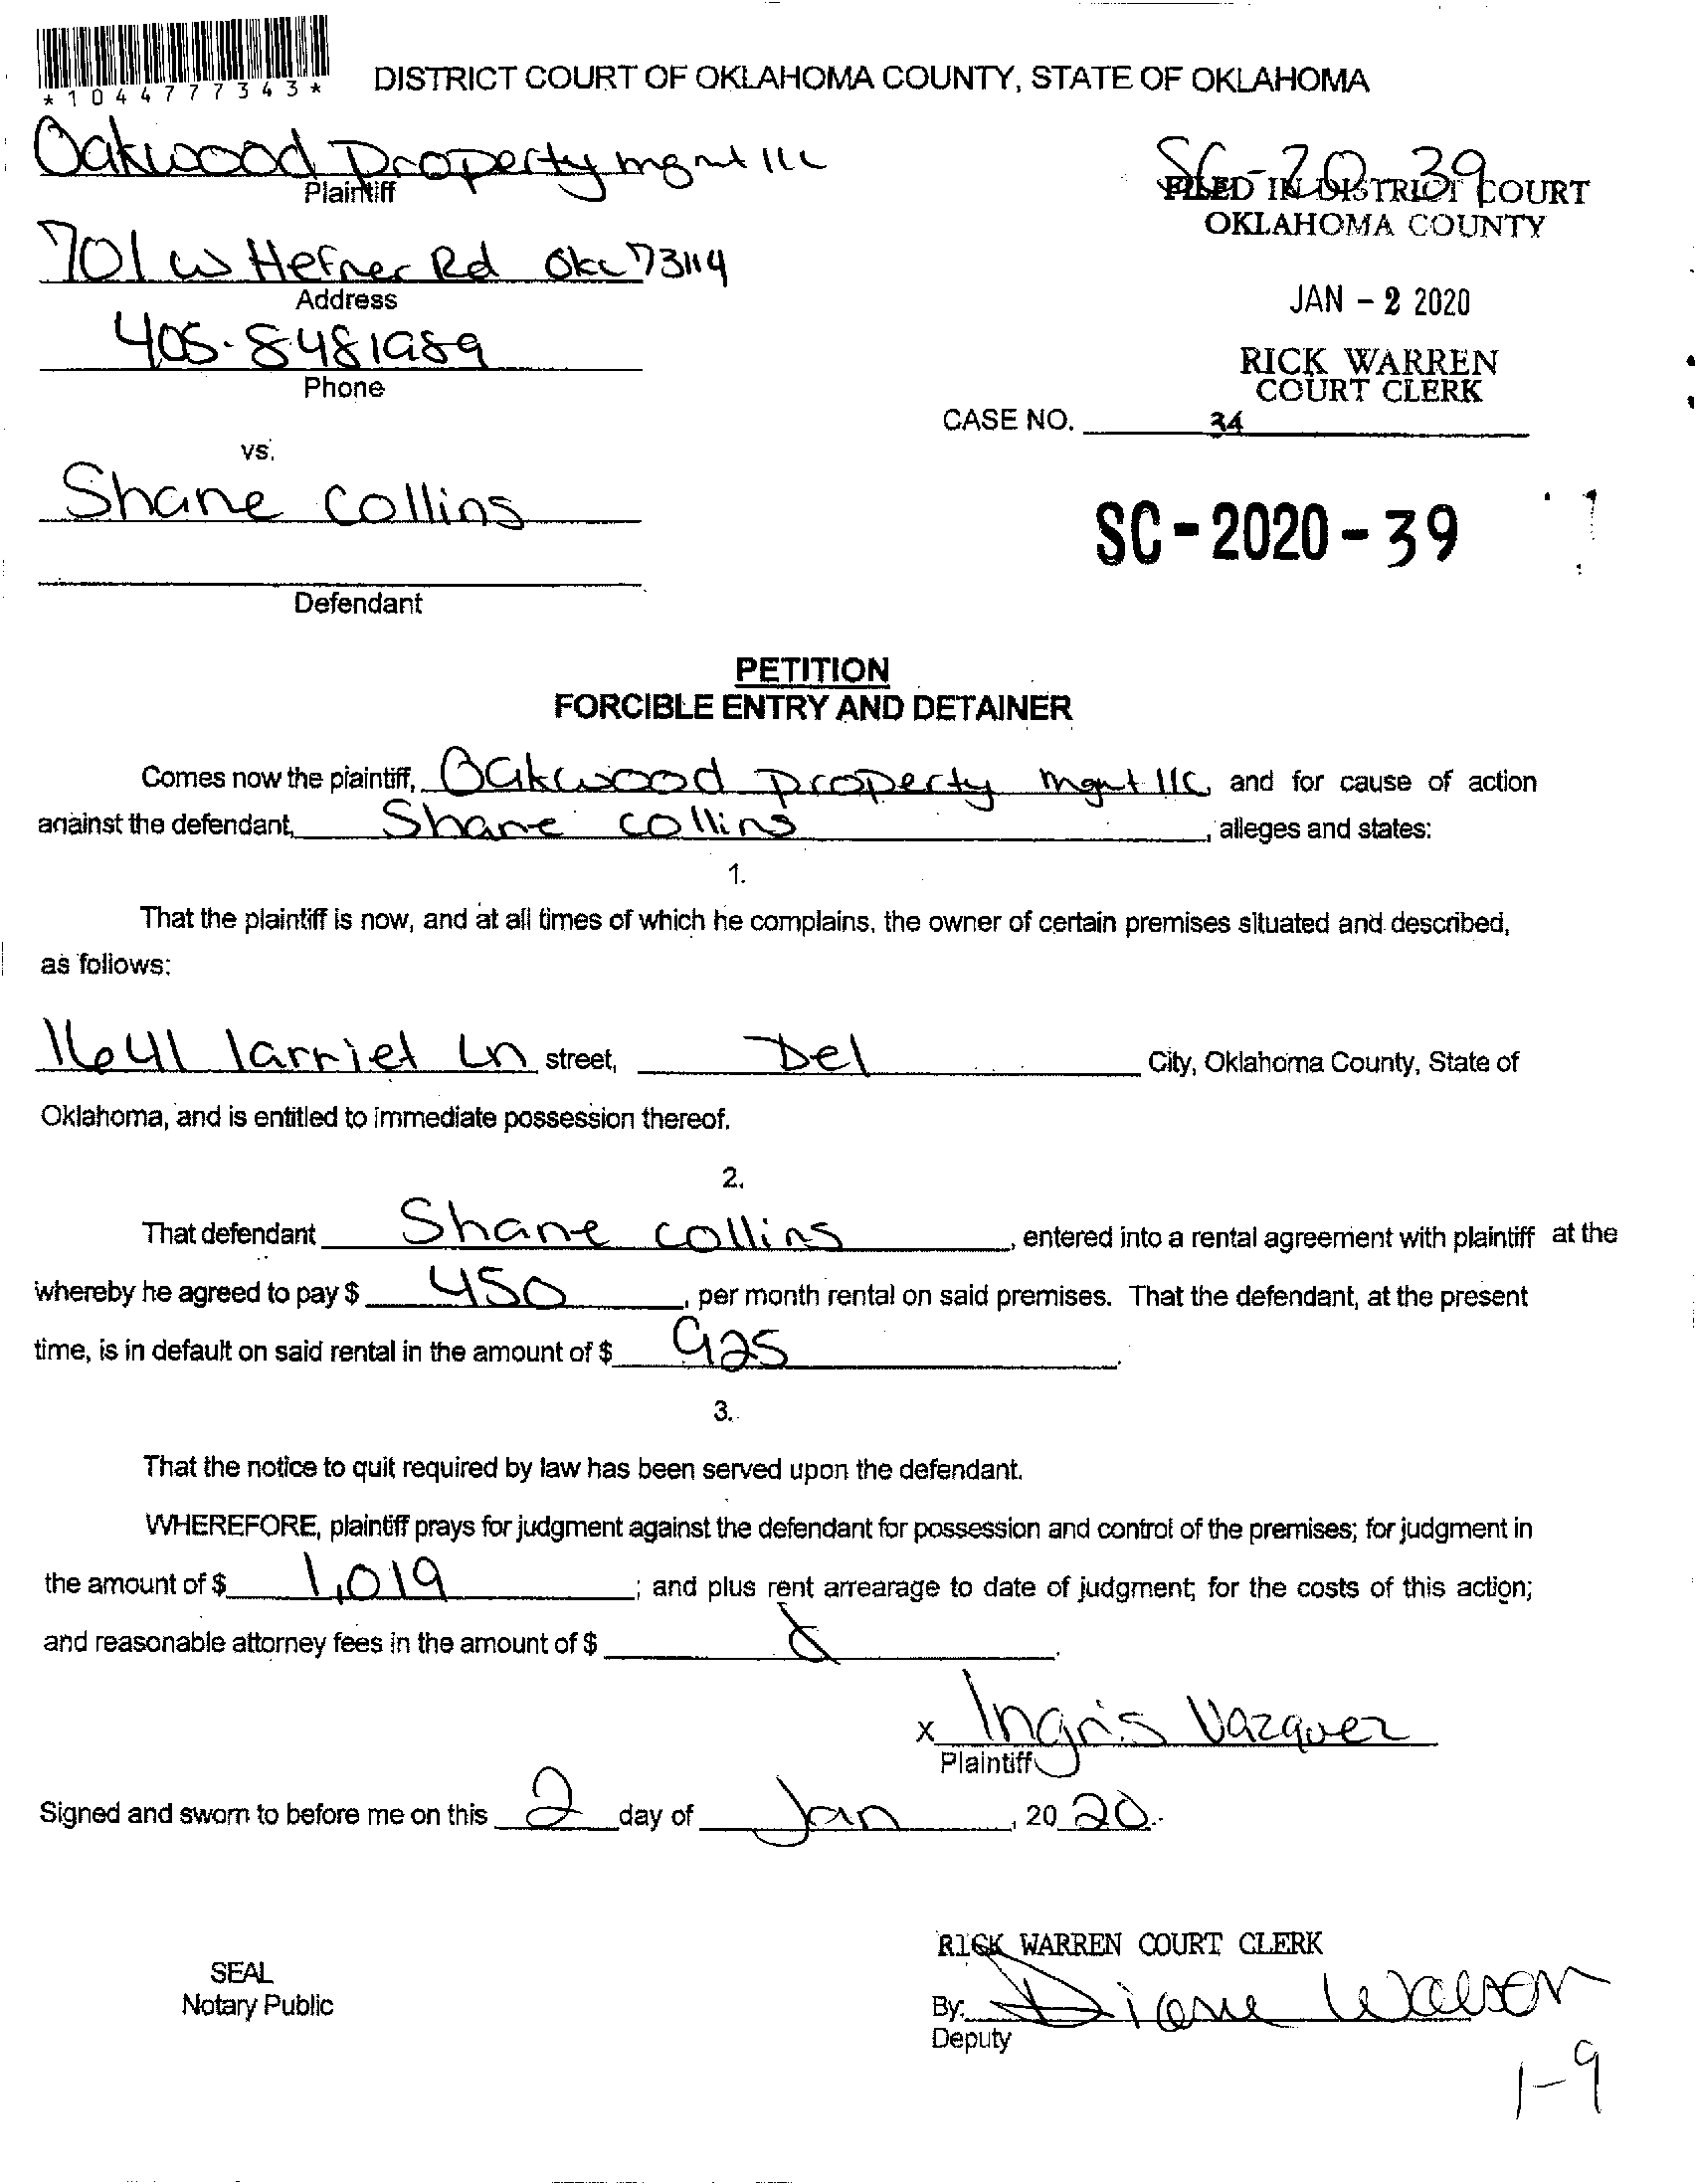 *1044777343*
DISTRICT COURT OF OKLAHOMA COUNTY, STATE OF OKLAHOMA
Oakwood Property mgmt llc
Plaintiff
SC-20-39
FILED IN DISTRICT COURT
OKLAHOMA COUNTY
701 W Hefner Rd Okc 73114
Address
JAN - 2 2020
405-8481989
Phone
RICK WARREN
COURT CLERK
CASE NO. 34
vs.
Shane Collins
SC-2020-39
Defendant
PETITION
FORCIBLE ENTRY AND DETAINER
Comes now the plaintiff, Oakwood Property mgmt llc, and for cause of action
against the defendant, Shane Collins, alleges and states:
1.
That the plaintiff is now, and at all times of which he complains, the owner of certain premises situated and described,
as follows:
1641 larriet Ln street, Del City, Oklahoma County, State of
Oklahoma, and is entitled to immediate possession thereof.
2.
That defendant Shane Collins, entered into a rental agreement with plaintiff at the
whereby he agreed to pay $ 450, per month rental on said premises. That the defendant, at the present
time, is in default on said rental in the amount of $ 925.
3.
That the notice to quit required by law has been served upon the defendant.
WHEREFORE, plaintiff prays for judgment against the defendant for possession and control of the premises; for judgment in
the amount of $ 1,019; and plus rent arrearage to date of judgment; for the costs of this action;
and reasonable attorney fees in the amount of $
x Ingris Vazquez
Plaintiff
Signed and sworn to before me on this 2 day of Jan, 20 20.
RICK WARREN COURT CLERK
SEAL
Notary Public
By: Diane Walson
Deputy
1-9